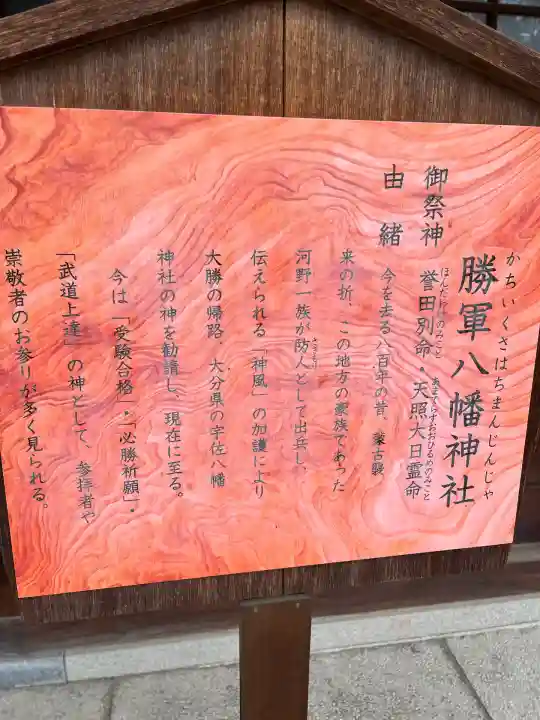 かちいくさはちまんじんじゃ
勝軍八幡神社
御祭神 誉田別命・天照大日霊命
ほんだわけのみこと あまてらすおおひるめのみこと
由緒 今を去る八百年の昔、蒙古襲
来の折、この地方の豪族であった
河野一族が防人として出兵し、
さきもり
伝えられる「神風」の加護により
大勝の帰路 大分県の宇佐八幡
神社の神を勧請し、現在に至る。
今は「受験合格」・「必勝祈願」・
「武道上達」の神として、参拝者や
崇敬者のお参りが多く見られる。